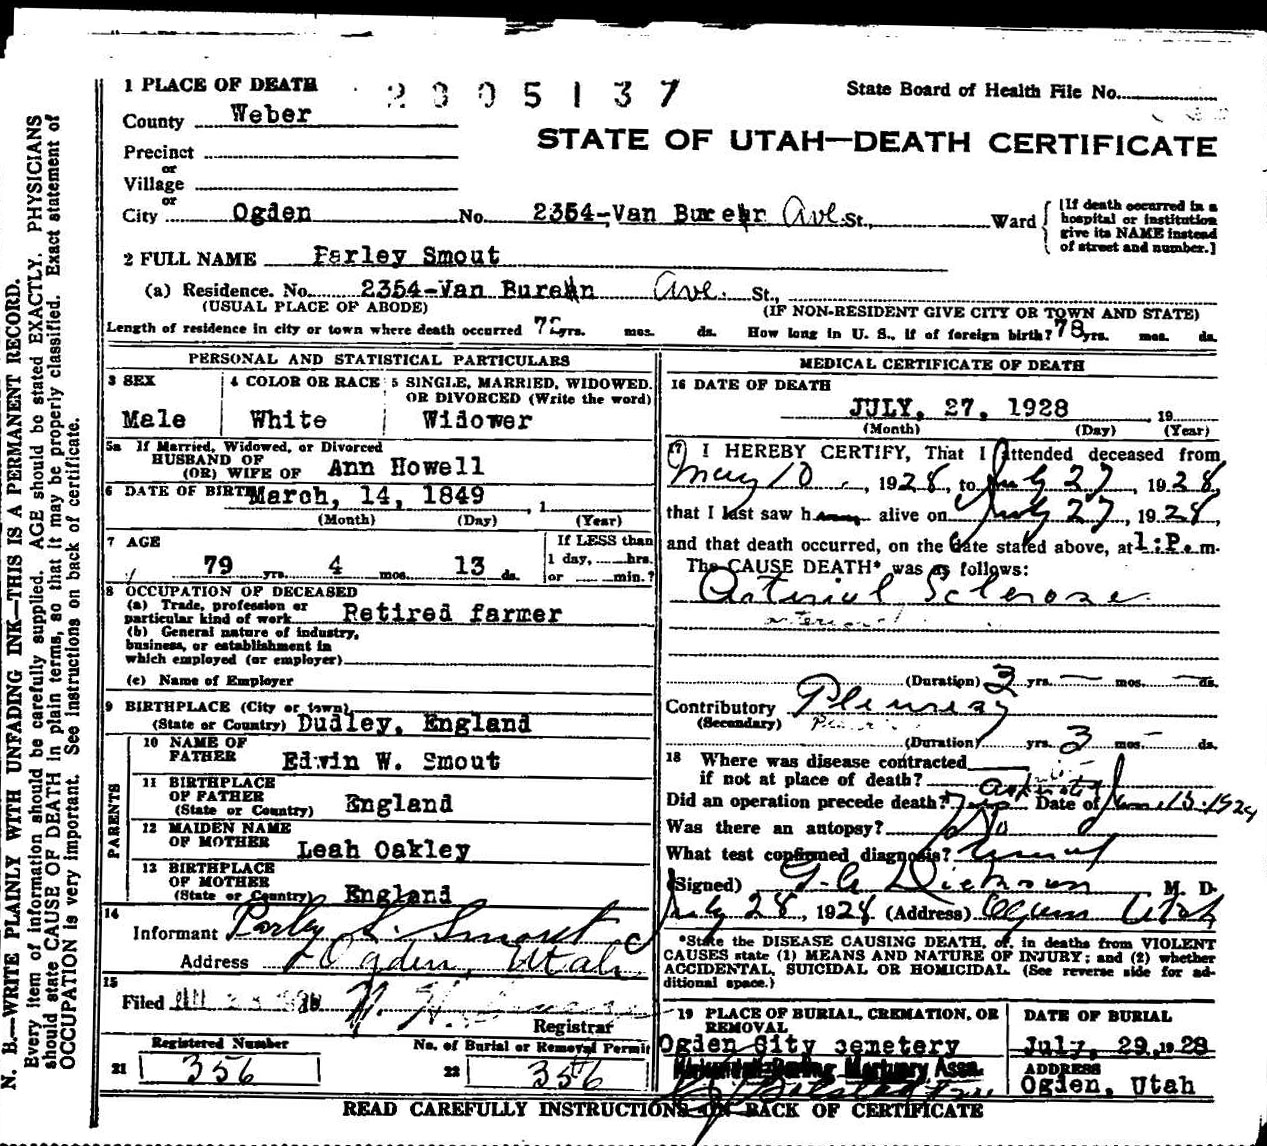 1 PLACE OF DEATH
2005137
State Board of Health File No.
County Weber
STATE OF UTAH—DEATH CERTIFICATE
Precinct
or
Village
or
City Ogden No. 2354-Van Buren Ave. St., Ward
[If death occurred in a hospital or institution give its NAME instead of street and number.]
2 FULL NAME Parley Smout
(a) Residence. No. 2354-Van Buren Ave. St.,
(USUAL PLACE OF ABODE) (IF NON-RESIDENT GIVE CITY OR TOWN AND STATE)
Length of residence in city or town where death occurred yrs. mos. ds. How long in U. S., if of foreign birth? 78 yrs. mos. ds.
PERSONAL AND STATISTICAL PARTICULARS
3 SEX
Male
4 COLOR OR RACE
White
5 SINGLE, MARRIED, WIDOWED, OR DIVORCED (Write the word)
Widower
5a If Married, Widowed, or Divorced
HUSBAND OF
(OR) WIFE OF Ann Howell
6 DATE OF BIRTH March, 14, 1849, 1
(Month) (Day) (Year)
7 AGE
79 yrs. 4 mos. 13 ds.
If LESS than
1 day, hrs.
or min.?
8 OCCUPATION OF DECEASED
(a) Trade, profession or
particular kind of work Retired farmer
(b) General nature of industry,
business, or establishment in
which employed (or employer)
(c) Name of Employer
9 BIRTHPLACE (City or town)
(State or Country) Dudley, England
PARENTS
10 NAME OF
FATHER Edwin W. Smout
11 BIRTHPLACE
OF FATHER
(State or Country) England
12 MAIDEN NAME
OF MOTHER Leah Oakley
13 BIRTHPLACE
OF MOTHER
(State or Country) England
14
Informant Parley S. Smout
Address Ogden, Utah
15
Filed
Registrar
Registered Number
21 356
No. of Burial or Removal Permit
22 356
MEDICAL CERTIFICATE OF DEATH
16 DATE OF DEATH
JULY, 27, 1928, 19
(Month) (Day) (Year)
17 I HEREBY CERTIFY, That I attended deceased from
May 10, 1928, to July 27, 1928,
that I last saw h alive on July 27, 1928,
and that death occurred, on the date stated above, at 1:P.m.
The CAUSE DEATH* was as follows:
Arterial Sclerose
arterial
(Duration) 3 yrs. — mos. — ds.
Contributory Pleurisy
(Secondary)
(Duration) yrs. 3 mos. — ds.
18 Where was disease contracted
if not at place of death?
Did an operation precede death? Date of
Was there an autopsy? No
What test confirmed diagnosis?
(Signed) Dickson M. D.
July 28, 1928 (Address) Ogden Utah
*State the DISEASE CAUSING DEATH, or, in deaths from VIOLENT
CAUSES state (1) MEANS AND NATURE OF INJURY; and (2) whether
ACCIDENTAL, SUICIDAL OR HOMICIDAL. (See reverse side for ad-
ditional space.)
19 PLACE OF BURIAL, CREMATION, OR
REMOVAL
Ogden City cemetery
DATE OF BURIAL
July, 29, 1928
Mortuary Assn.
ADDRESS
Ogden, Utah
READ CAREFULLY INSTRUCTIONS ON BACK OF CERTIFICATE
N. B.—WRITE PLAINLY WITH UNFADING INK—THIS IS A PERMANENT RECORD.
Every item of information should be carefully supplied. AGE should be stated EXACTLY. PHYSICIANS
should state CAUSE OF DEATH in plain terms, so that it may be properly classified. Exact statement of
OCCUPATION is very important. See instructions on back of certificate.